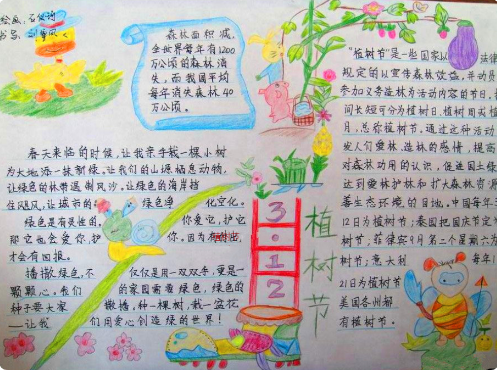 绘画:
书写:
森林面积减,
全世界每年有1200
万公顷的森林消
失,而我国平均
每年消失森林40
万公顷。
"植树节"是一些国家以法律
规定的以宣传森林效益,并动员
参加义务造林为活动内容的节日,
间长短可分为植树日、植树周
月,总称植树节,通过这种活动,
人们爱林、造林的感情,提高
对森林功用的认识,促进国土绿
达到爱林护林和扩大森林资源
善生态环境的目地。中国每年3
12日为植树节;泰国把国庆节定
树节;菲律宾9月第二个星期六为
树节;意大利每年1
21日为植树节
美国各州都
有植树节。
春天来临的时候,让我亲手栽一棵小树
为大地添一抹新绿,让我们的山栖息动物,
让绿色的林带遏制风沙,让绿色的海岸挡
住飓风,让城市的绿色净化空化。
绿色是有灵性的,你爱它,护它
那它也会爱你,护你。因为有付出,
才会有回报。
播撒绿色,不仅仅是用一双双手,更是一
颗颗心。我们的家园需要绿色,绿色的
种子要大家撒播,种一棵树,栽一盆花
——让我们用爱心创造绿的世界!
3.12
植树节